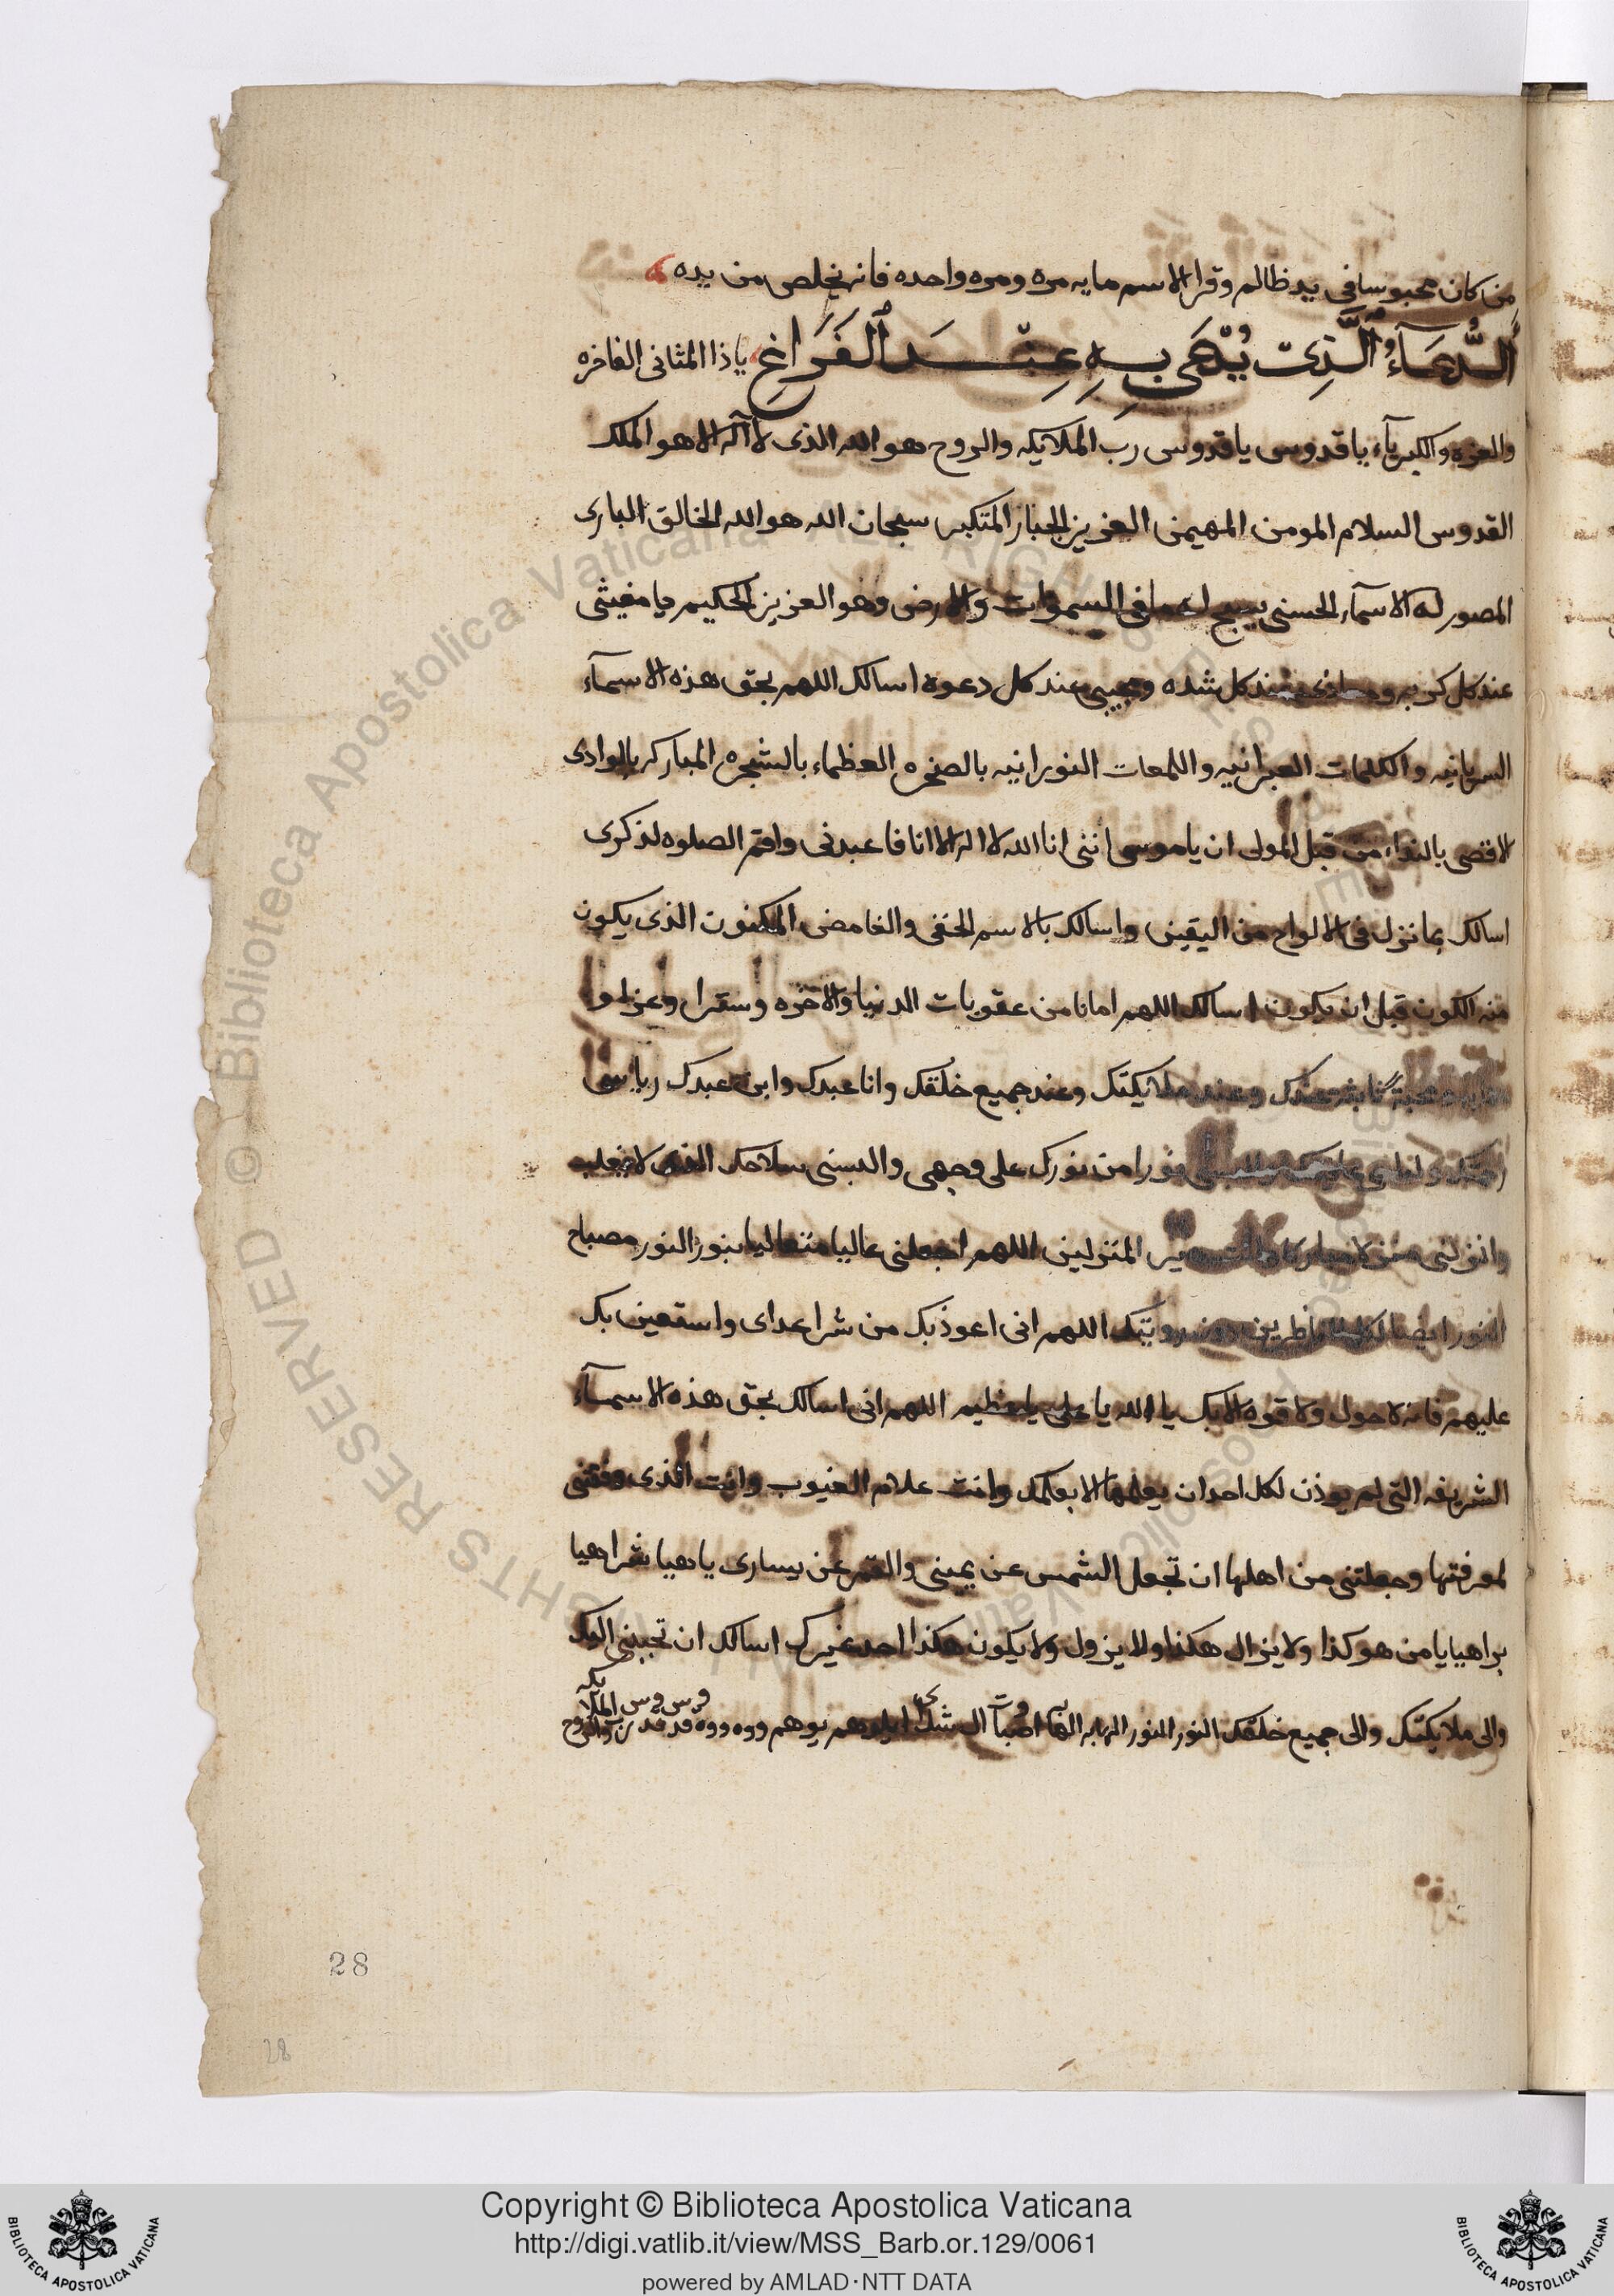 من كان محبوسا في يد ظالم وقرا الاسم مايه مره ومره واحده فانه يخلص من يده
اَلدُّعَآءُ الَّذِي يُدْعَى بِهِ عِنْدَ الْفَرَاغِ ياذا المثانى الفاخره
والعزه والكبريآء ياقدوس ياقدوس رب الملايكه والروح هو الله الذى لا آله الا هو الملك
القدوس السلام المومن المهيمن العزيز الجبار المتكبر سبحان الله هو الله الخالق البارى
المصور له الاسمآء الحسنى يسبح له ما في السموات والارض وهو العزيز الحكيم يا مغيثى
عند كل كربه عند كل شده ومجيبى عند كل دعوه اسالك اللهم بحق هذه الاسمآء
السريانيه والكلمات العبرانيه واللمعات النورانيه بالصخره العظماء بالشجره المباركه بالوادى
لاقصى بالنداء من قبل المولى ان ياموسى اننى انا الله لا اله الا انا فاعبدنى واقم الصلوه لذكرى
اسالك بما نزل فى الالواح من اليقين واسالك بالاسم الخفى والغامض المكنون الذى يكون
منه الكون قبل ان يكون اسالك اللهم امانا من عقوبات الدنيا والاخره
عندك وعند ملايكتك وعند جميع خلقك وانا عبدك وابن عبدك
نورا من نورك على وجهى والبسنى
وانزلنى المنزلين اللهم اجعلنى عاليا متعاليا بنور النور مصباح
النور اللهم انى اعوذ بك من شر اعداى واستعين بك
عليهم فانه لا حول ولا قوه الا بك يا الله يا على يا عظيم اللهم انى اسالك بحق هذه الاسمآء
الشريفه التى لم يوذن لكل احد ان يعلمها الا بعلمك وانت علام الغيوب وانت الذى وفقتنى
لمعرفتها وجعلتنى من اهلها ان تجعل الشمس عن يمينى والقمر عن يسارى ياهيا شراهيا
براهيا يا من هو كذا ولا يزال هكذا ولا يزول ولا يكون هكذا احد غيرك اسالك ان تحببنى اليك
والى ملايكتك والى جميع خلقك النور النور
28
28
© Biblioteca Apostolica Vaticana ALL RIGHTS RESERVED
BIBLIOTECA APOSTOLICA VATICANA
Copyright © Biblioteca Apostolica Vaticana
http://digi.vatlib.it/view/MSS_Barb.or.129/0061
powered by AMLAD·NTT DATA
BIBLIOTECA APOSTOLICA VATICANA